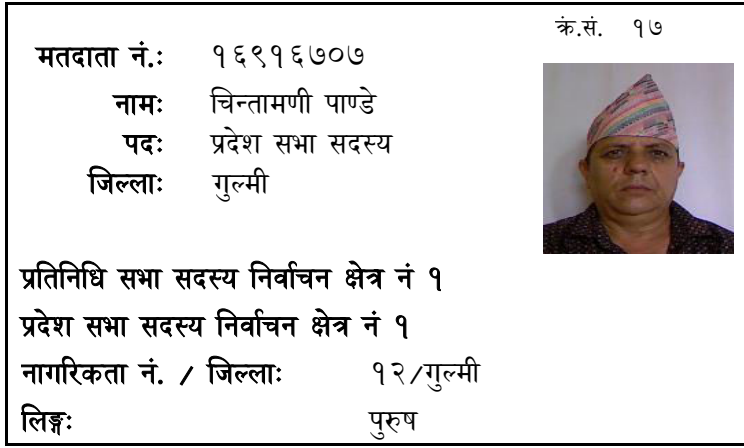 क्रं.सं. १७
मतदाता नं.: १६९१६७०७
नामः चिन्तामणी पाण्डे
पदः प्रदेश सभा सदस्य
जिल्लाः गुल्मी
प्रतिनिधि सभा सदस्य निर्वाचन क्षेत्र नं १
प्रदेश सभा सदस्य निर्वाचन क्षेत्र नं १
नागरिकता नं. / जिल्लाः १२/गुल्मी
लिङ्गः पुरुष